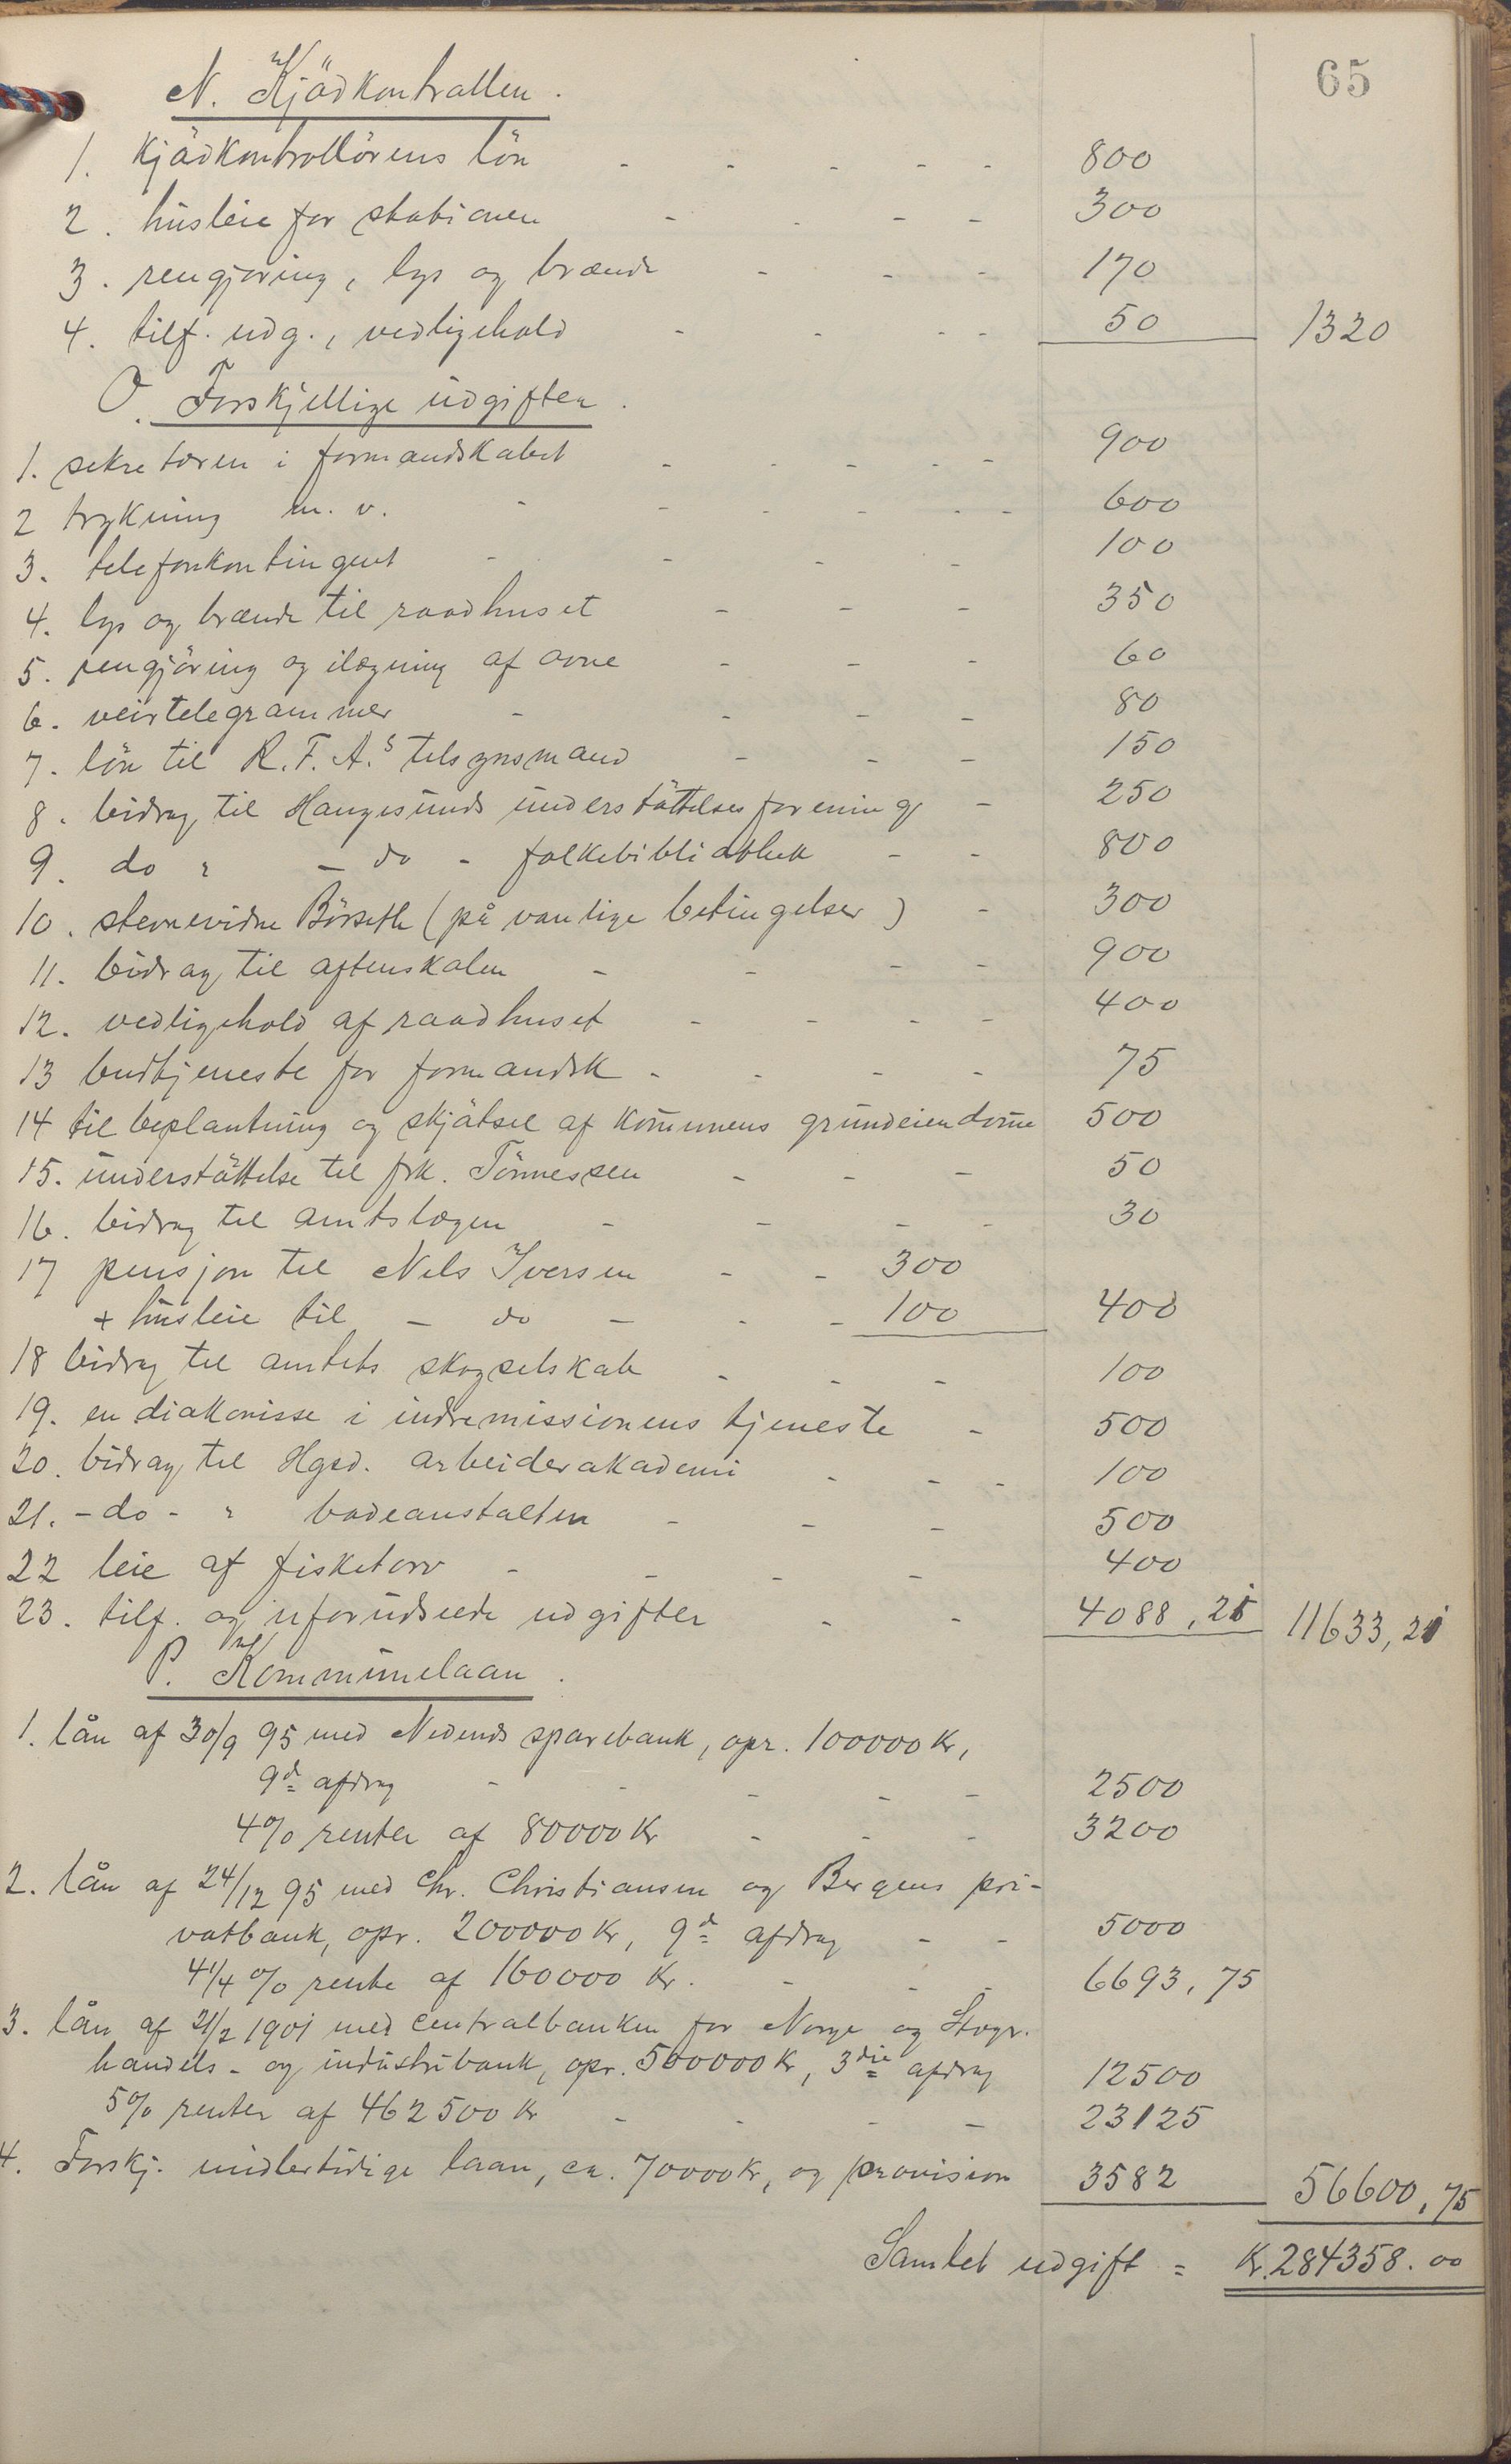 65
N. Kjödkontrollen.
1. Kjödkontrollörens lön - - - - - 800
2. husleie for stationen - - - - 300
3. rengjøring, lys og brænde - - - 170
4. tilf. udg., vedligehold - - - - 50 1320
O. Forskjellige udgifter.
1. sekretæren i formandskabet - - - - - 900
2 trykning m. v. - - - - - - 600
3. telefonkontingent - - - - 100
4. lys og brænde til raadhuset - - - 350
5. rengjöring og ilægning af ovne - - - 60
6. veirtelegrammer - - - - 80
7. lön til R. F. A.s tilsynsmand - - - 150
8. bidrag til Haugesunds understöttelsesforening - 250
9. do " - do - folkebibliothek - - 800
10. stevnevidne Börseth (på vanlige betingelser) - 300
11. bidrag til aftenskolen - - - - 900
12. vedligehold af raadhuset - - - - 400
13 budtjeneste for formandsk - - - - 75
14 til beplantning og skjötsel af kommunens grundeiendome 500
15. understöttelse til frk. Tönnessen - - - 50
16. bidrag til amtslægen - - - - 30
17 pensjon til Nils Iversen - - 300
+ husleie til - do - - - 100 400
18 bidrag til amtets skogselskab - - - 100
19. en diakonisse i indremissionens tjeneste - 500
20. bidrag til Hgsd. arbeiderakademi - - - 100
21. - do - " badeanstalten - - - 500
22 leie af fisketorv - - - - 400
23. tilf. og uforudseede udgifter - - 4088,25 11633,25
P. Kommunelaan.
1. lån af 30/9 95 med Nedenes sparebank, opr. 100000 Kr,
9de afdrag - - - - - 2500
4% renter af 80000 Kr - - - 3200
2. lån af 24/12 95 med Chr. Christiansen og Bergens pri-
vatbank, opr. 200000 Kr, 9de afdrag - - 5000
4 1/4 % rente af 160000 Kr. - - - 6693,75
3. lån af 21/2 1901 med centralbanken for Norge og Stvgr.
handels- og industribank, opr. 500000 Kr, 3die afdrag 12500
5% renter af 462500 Kr - - - - 23125
4. Forskj. midlertidige laan, ca. 70000 Kr, og provision 3582 56600,75
Samlet udgift = Kr. 284358.00